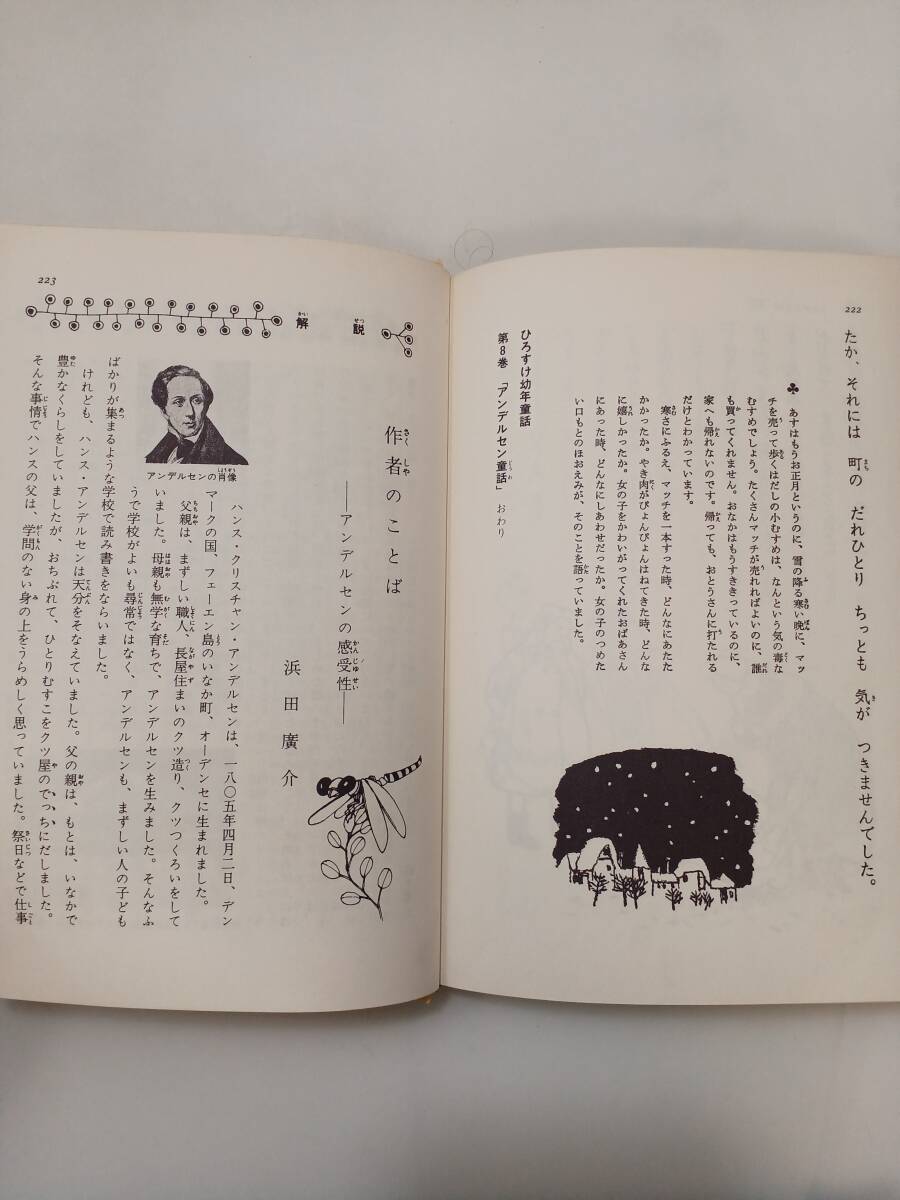 222
たか、それには 町の だれひとり ちっとも 気が つきませんでした。
♣ あすはもうお正月というのに、雪の降る寒い晩に、マッ
チを売って歩くはだしの小むすめは、なんという気の毒な
むすめでしょう。たくさんマッチが売れればよいのに、誰
も買ってくれません。おなかはもうすききっているのに、
家へも帰れないのです。帰っても、おとうさんに打たれる
だけとわかっています。
寒さにふるえ、マッチを一本すった時、どんなにあたた
かかったか。やき肉がぴょんぴょんはねてきた時、どんな
に嬉しかったか。女の子をかわいがってくれたおばあさん
にあった時、どんなにしあわせだったか。女の子のつめた
い口もとのほおえみが、そのことを語っていました。
ひろすけ幼年童話
第8巻「アンデルセン童話」おわり
223
解説
作者のことば
――アンデルセンの感受性――
浜田廣介
アンデルセンの肖像
ハンス・クリスチャン・アンデルセンは、一八〇五年四月二日、デン
マークの国、フェーエン島のいなか町、オーデンセに生まれました。
父親は、まずしい職人、長屋住まいのクツ造り、クツつくろいをして
いました。母親も無学な育ちで、アンデルセンを生みました。そんなふ
うで学校がよいも尋常ではなく、アンデルセンも、まずしい人の子ども
ばかりが集まるような学校で読み書きをならいました。
けれども、ハンス・アンデルセンは天分をそなえていました。父の親は、もとは、いなかで
豊かなくらしをしていましたが、おちぶれて、ひとりむすこをクツ屋のでっちにだしました。
そんな事情でハンスの父は、学問のない身の上をうらめしく思っていました。祭日などで仕事